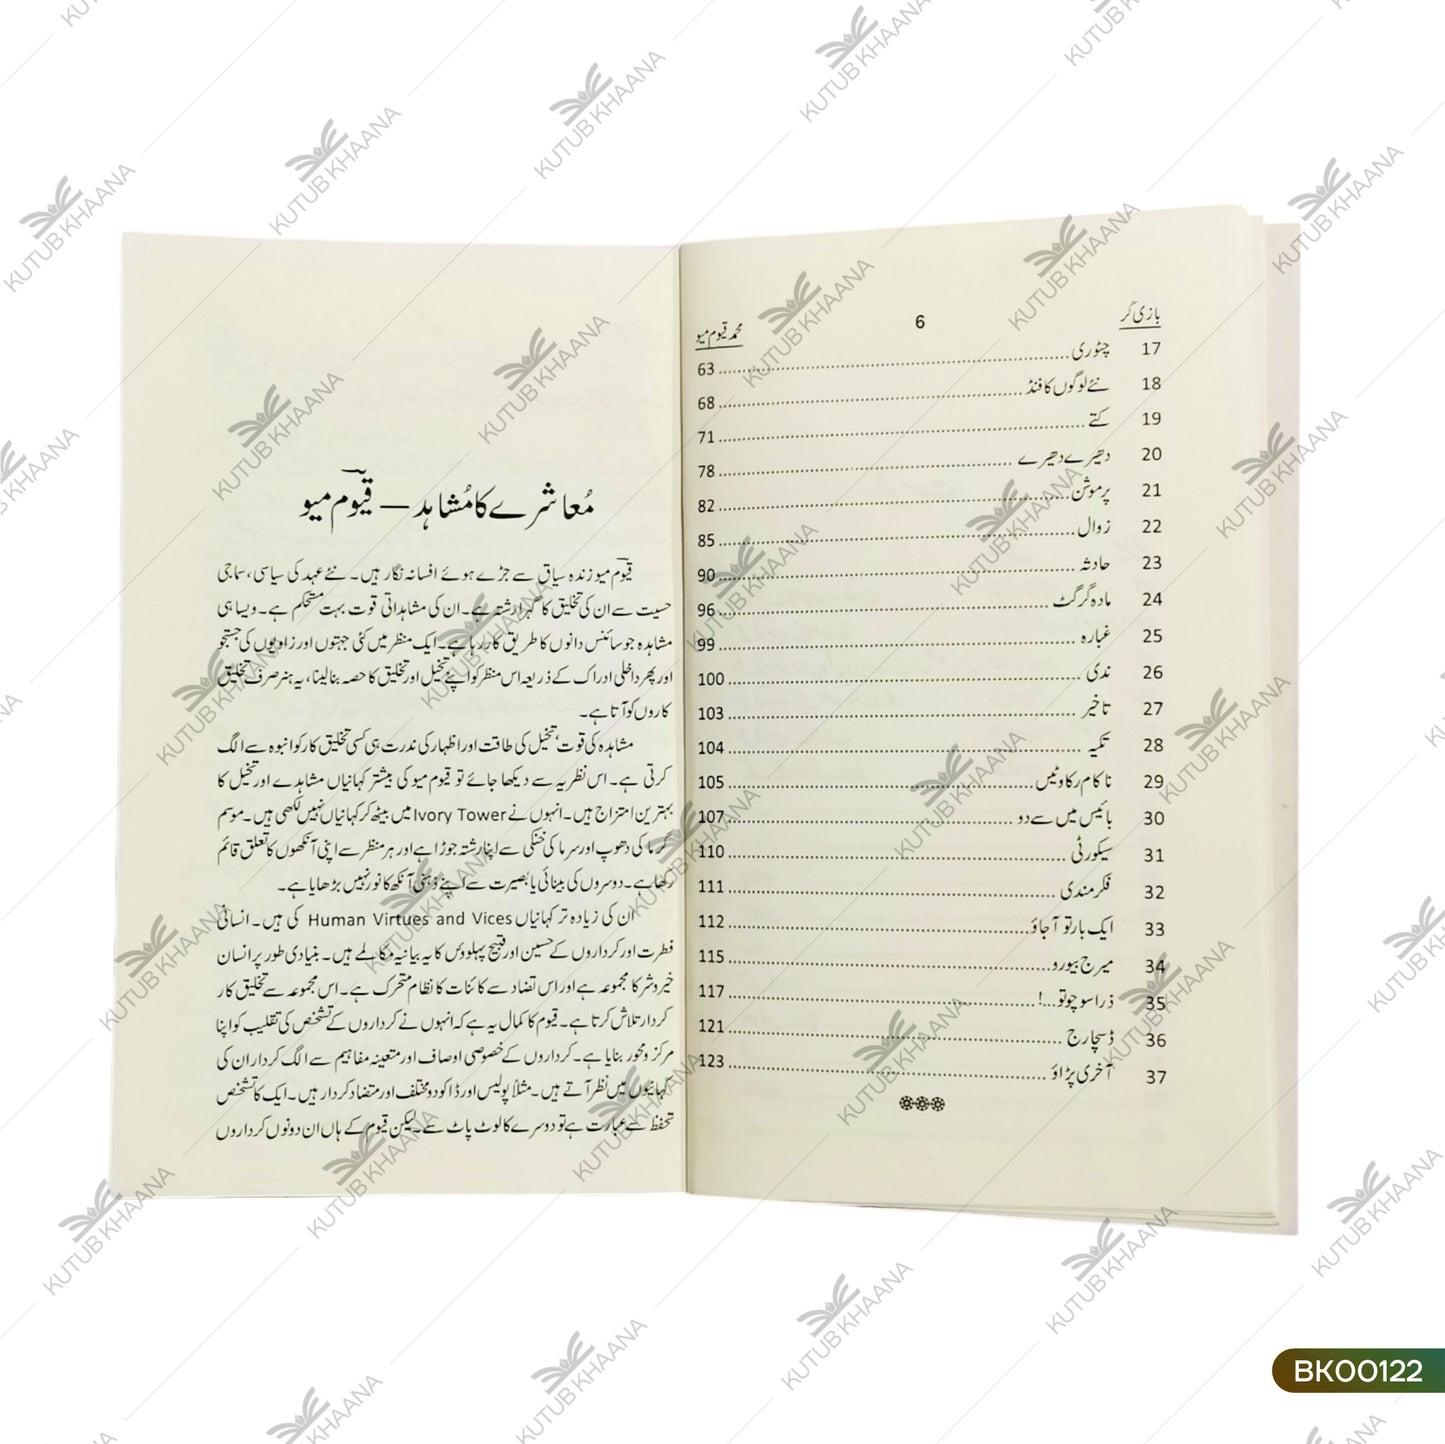 بازی گر
6
محمد قیوم میو
17 چٹوری 63
18 نئے لوگوں کا فنڈ 68
19 کتے 71
20 دھیرے دھیرے 78
21 پرموشن 82
22 زوال 85
23 حادثہ 90
24 مادہ گرگٹ 96
25 غبارہ 99
26 ندی 100
27 تاخیر 103
28 تکیہ 104
29 ناکام رکاوٹیں 105
30 بائیس میں سے دو 107
31 سیکورٹی 110
32 فکر مندی 111
33 ایک بار تو آجاؤ 112
34 میرج بیورو 115
35 ذرا سوچو تو...! 117
36 ڈسچارج 121
37 آخری پڑاؤ 123
مُعاشرے کا مُشاہد — قیوم میو
قیوم میو زندہ سیاق سے جڑے ہوئے افسانہ نگار ہیں۔ نئے عہد کی سیاسی، سماجی
حسیت سے ان کی تخلیق کا گہرا رشتہ ہے۔ ان کی مشاہداتی قوت بہت مستحکم ہے۔ ویسا ہی
مشاہدہ جو سائنس دانوں کا طریق کار رہا ہے۔ ایک منظر میں کئی جہتوں اور زاویوں کی جستجو
اور پھر داخلی ادراک کے ذریعہ اس منظر کو اپنے تخیل اور تخلیق کا حصہ بنا لینا، یہ ہنر صرف تخلیق
کاروں کو آتا ہے۔
مشاہدہ کی قوت، تخیل کی طاقت اور اظہار کی ندرت ہی کسی تخلیق کار کو انبوہ سے الگ
کرتی ہے۔ اس نظریہ سے دیکھا جائے تو قیوم میو کی بیشتر کہانیاں مشاہدے اور تخیل کا
بہترین امتزاج ہیں۔ انہوں نے Ivory Tower میں بیٹھ کر کہانیاں نہیں لکھی ہیں۔ موسم
گرما کی دھوپ اور سرما کی خنکی سے اپنا رشتہ جوڑا ہے اور ہر منظر سے اپنی آنکھوں کا تعلق قائم
رکھا ہے۔ دوسروں کی بینائی یا بصیرت سے اپنے ذہنی آنکھ کا نور نہیں بڑھایا ہے۔
ان کی زیادہ تر کہانیاں Human Virtues and Vices کی ہیں۔ انسانی
فطرت اور کرداروں کے حسین اور قبیح پہلوؤں کا یہ بیانیہ مکالمے ہیں۔ بنیادی طور پر انسان
خیر و شر کا مجموعہ ہے اور اس تضاد سے کائنات کا نظام متحرک ہے۔ اس مجموعہ سے تخلیق کار
کردار تلاش کرتا ہے۔ قیوم کا کمال یہ ہے کہ انہوں نے کرداروں کے تشخص کی تقلیب کو اپنا
مرکز و محور بنایا ہے۔ کرداروں کے خصوصی اوصاف اور متعینہ مفاہیم سے الگ کردار ان کی
کہانیوں میں نظر آتے ہیں۔ مثلاً پولیس اور ڈاکو دو مختلف اور متضاد کردار ہیں۔ ایک کا تشخص
تحفظ سے عبارت ہے تو دوسرے کا لوٹ پاٹ سے۔ لیکن قیوم کے ہاں ان دونوں کرداروں
KUTUB KHAANA
BK00122